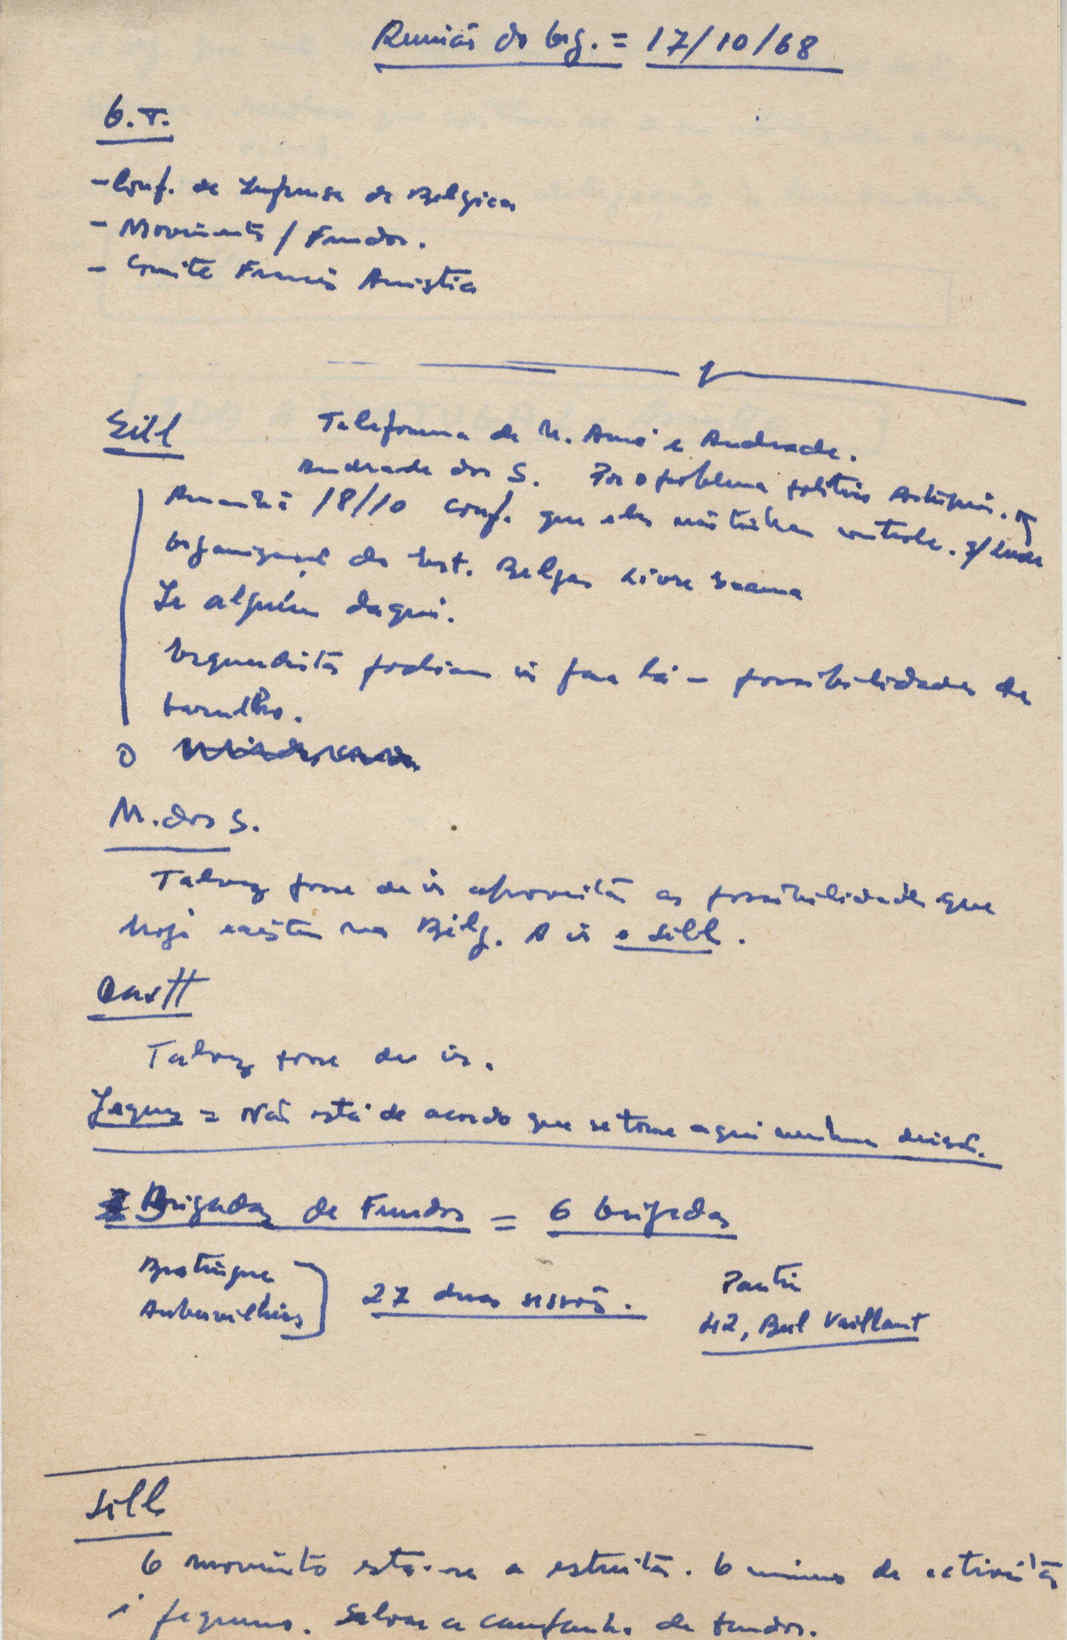 Reunião do org. = 17/10/68
O.T.
- Conf. de Imprensa da Belgica
- Movimento / Fundos.
- Comité Francês Amnistia
Sill
Telefonema de M. Amo e Andrade.
Andrade dos S. Por o problema politico
Amanhã 18/10 conf. que eles não tinham controle.
Organização do Est. Belgas Livre Exame
Ir alguém daqui.
Esquerdistas podiam ir para lá - possibilidades de
barulho.
O
M. dos S.
Talvez fosse de ir aproveitar as possibilidades que
hoje existem na Bélg. A ir o Sill.
Talvez fosse de ir.
= Não está de acordo que se tome aqui nenhuma decisão.
Brigadas de Fundos = 6 brigadas
Aubervilliers
27 duas
Pantin
42, Bul Vaillant
Sill
O movimento está-se a estreitar. O número de activistas
é pequeno. Salvar a campanha de fundos.